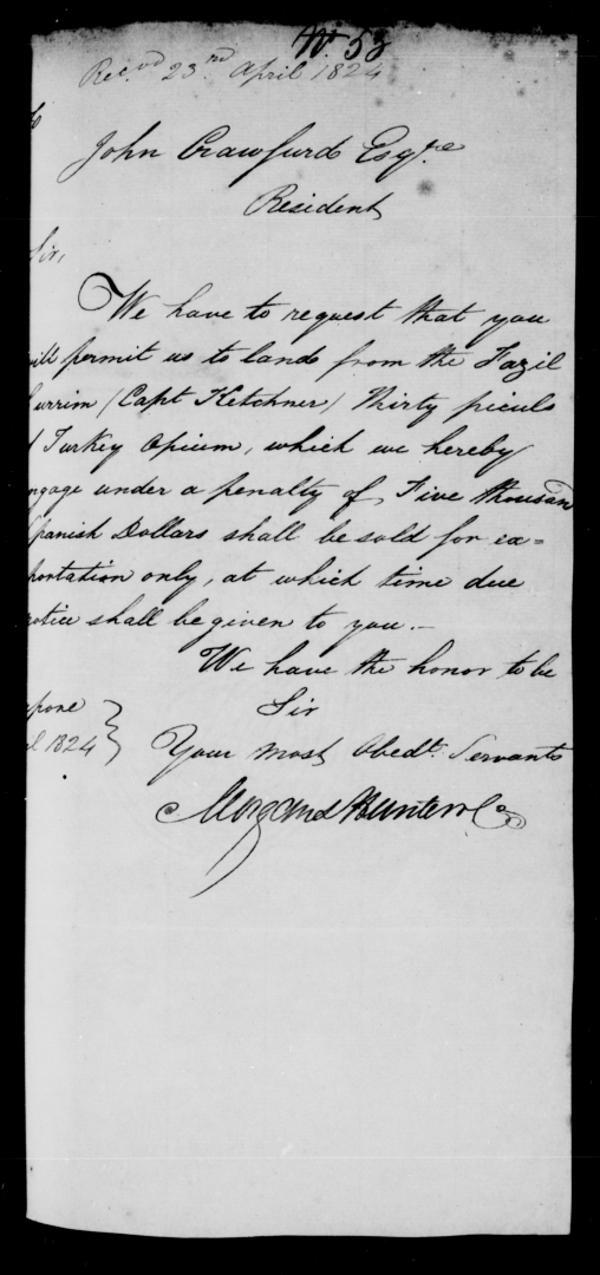 N. 53
Rec.vd 23.rd April 1824
John Crawfurd Esqre
Resident
Sir,
We have to request that you
will permit us to land from the Fazil
urrim (Capt Ketchner) Thirty piculs
Turkey Opium, which we hereby
ngage under a penalty of Five thousand
panish Dollars shall be sold for ex=
portation only, at which time due
notice shall be given to you.—
We have the honor to be
Sir
apore
il 1824 } Your most Obedt. Servants
Morgans Hunter & Co